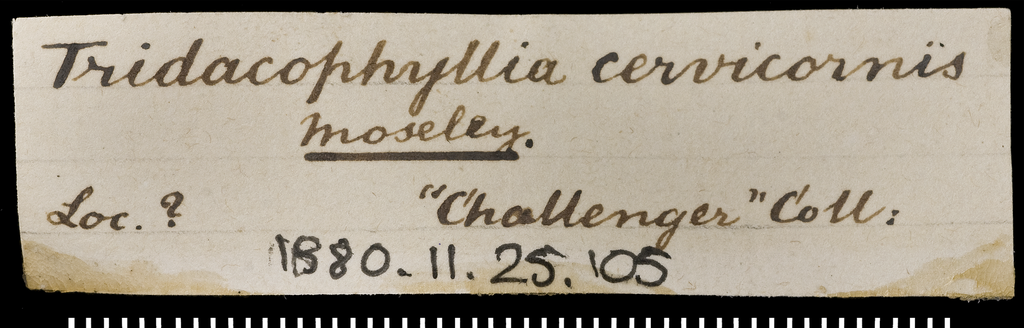 Tridacophyllia cervicornïs
Moseley.
Loc. ? "Challenger" Coll:
1880.11.25.105